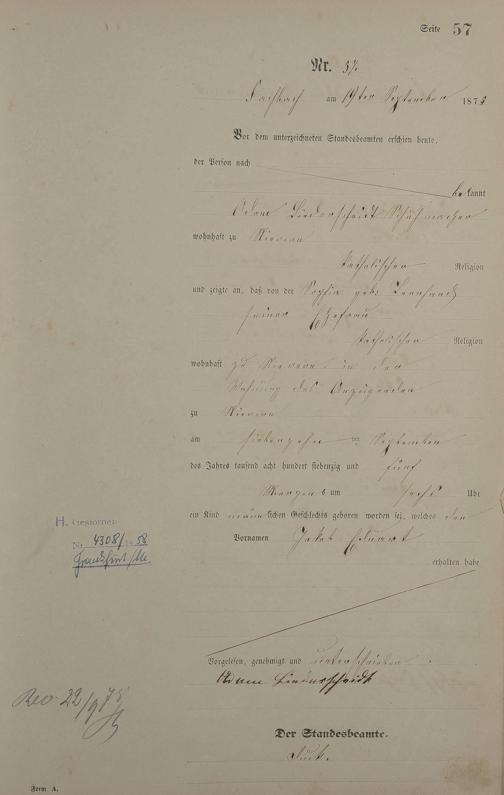 Seite 57
Nr. 57.
Fachbach am 19ten September 1875
Vor dem unterzeichneten Standesbeamten erschien heute,
der Person nach
bekannt
Adam Liederscheidt Schuhmacher
wohnhaft zu Nievern
katholischer Religion
und zeigte an, daß von der Sophia geb.
seiner Ehefrau
katholischer Religion
wohnhaft zu Nievern in der
Wohnung des Anzeigenden
zu Nievern
am siebenzehn ten September
des Jahres tausend acht hundert siebenzig und fünf
Morgens um sechs Uhr
ein Kind männlichen Geschlechts geboren worden sei, welches den
Vornamen Jakob
erhalten habe
H. Gestorben
Nr. 4308/1958
Frankfurt/M.
Vorgelesen, genehmigt und unterschrieben.
Adam Liederscheidt
Rev 22/9 75
Der Standesbeamte.
Form A.